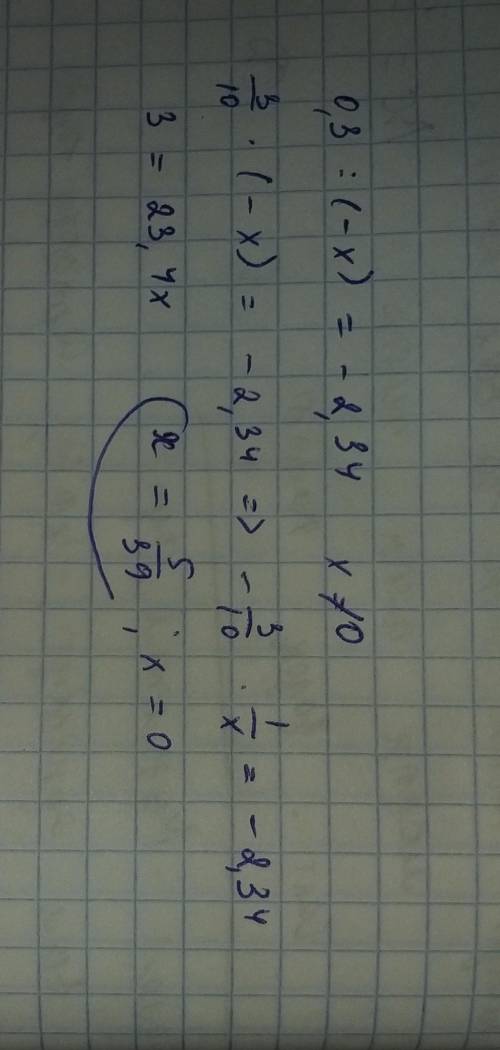 0,3 : (-x) = -2,34 x ≠ 0
3/10 · (-x) = -2,34 => -3/10 · 1/x = -2,34
3 = 23,4x x = 5/39 ; x = 0